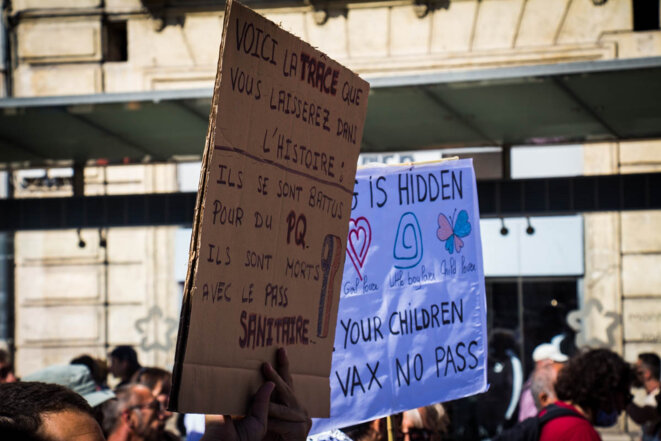 VOICI LA TRACE QUE
VOUS LAISSEREZ DANS
L'HISTOIRE :
ILS SE SONT BATTUS
POUR DU PQ.
ILS SONT MORTS
AVEC LE PASS
SANITAIRE.
IS HIDDEN
Girl lover Little boy lover Child lover
YOUR CHILDREN
VAX NO PASS